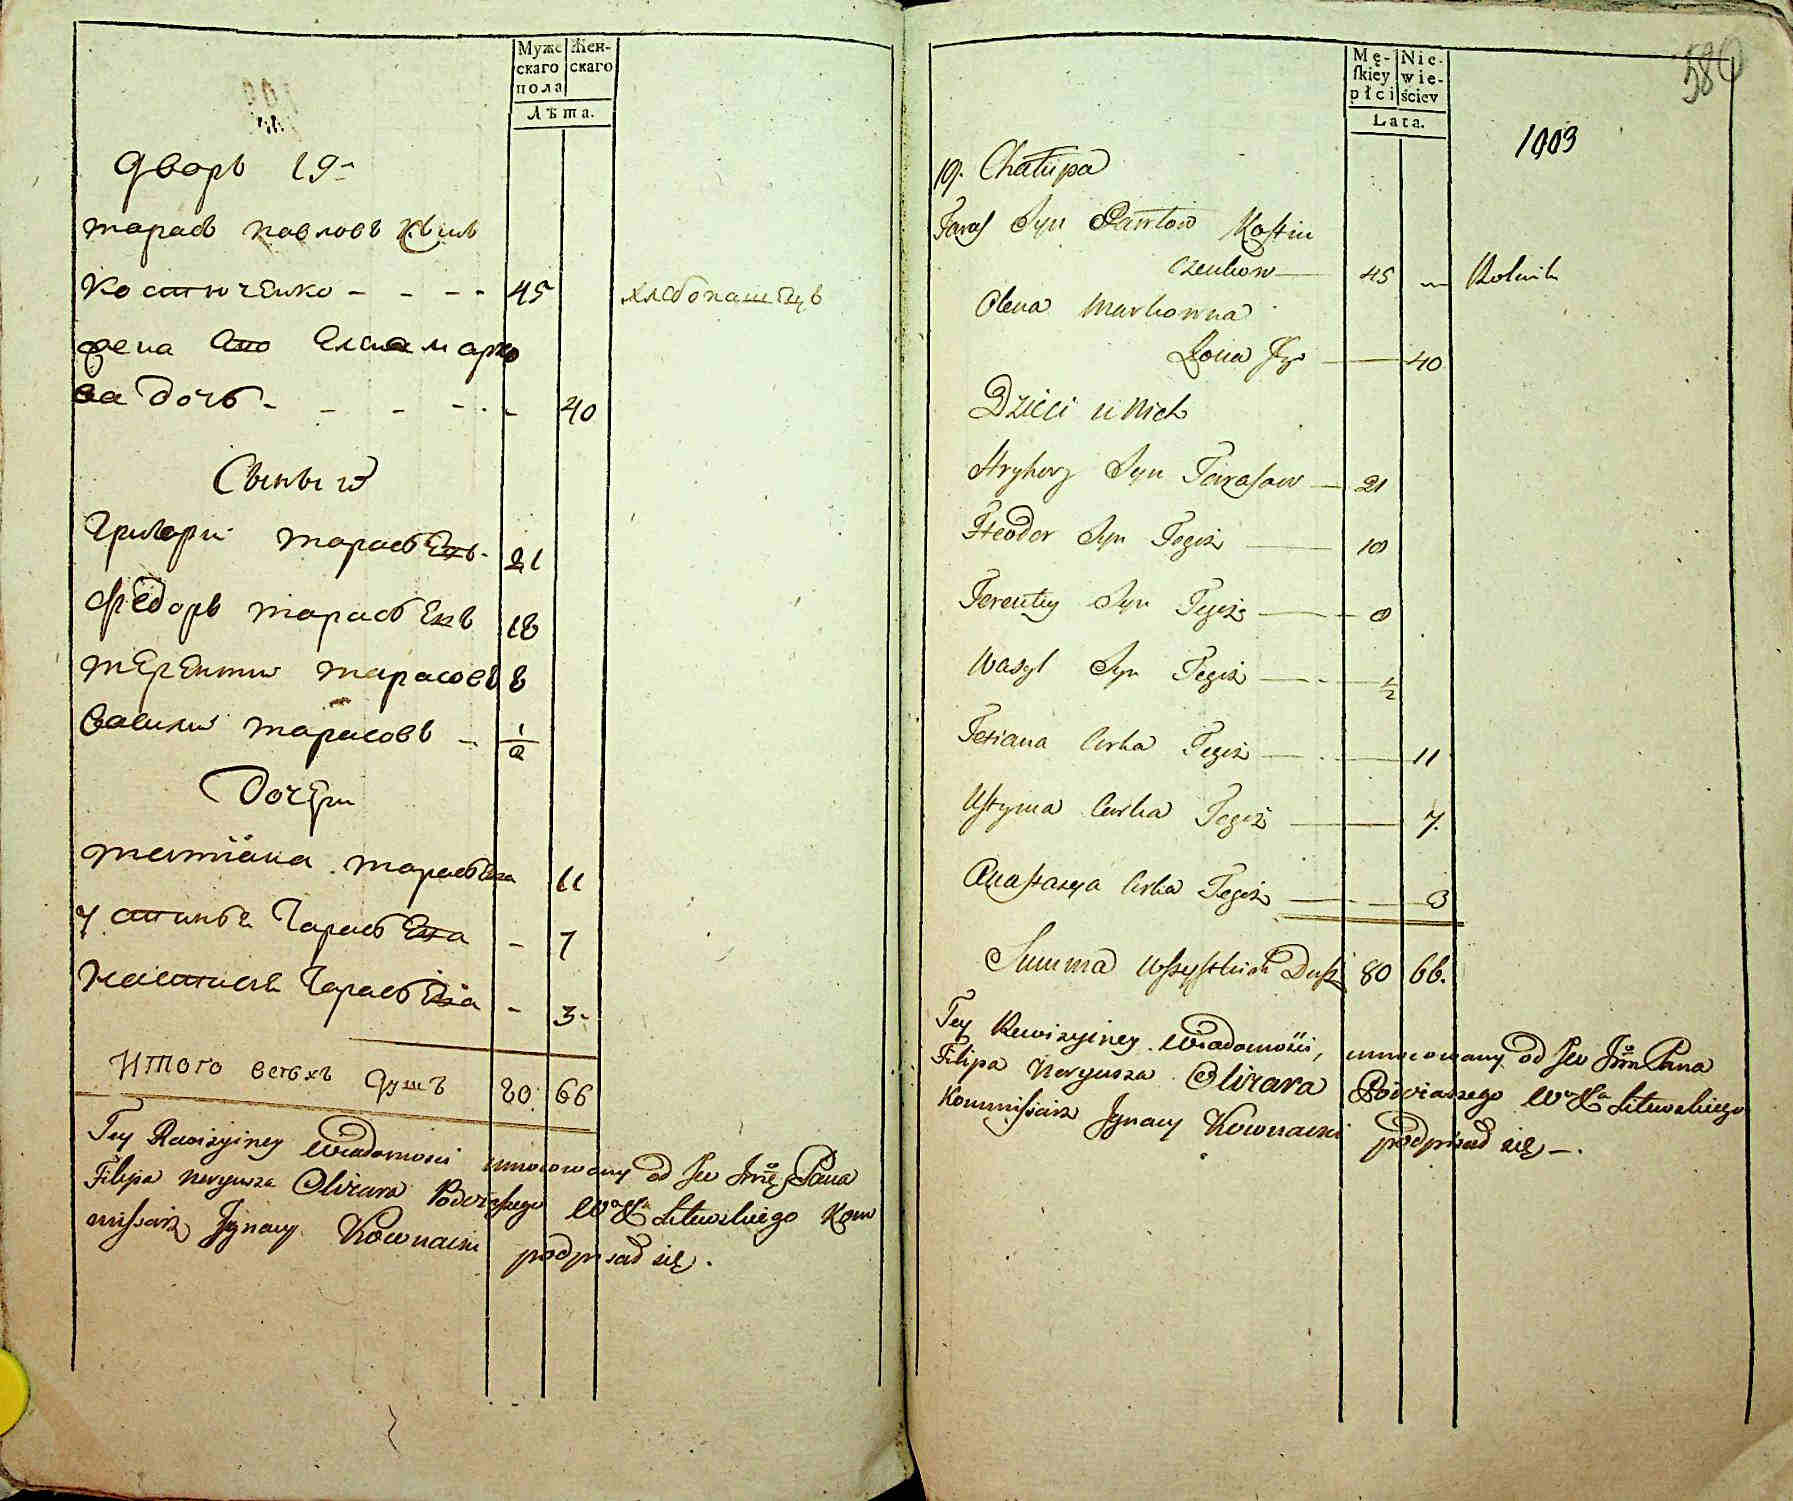 Муже
скаго
пола
Жен-
скаго
Лѣта.
дворъ 19
тарасъ павловъ сынъ
костюченко - - - - 45 хлебопашецъ
жена его елена марко
ва дочь - - - - - 40
Сыны их
Григори тарасъ енъ 21
Федоръ тарасъ енъ 18
терентии тарасовъ 8
василии тарасовъ - 1/2
Дочери
татиана тарасъ ена 11
устинья Тарасъ ена - 7
настасья Тарасъ ена - 3-
Итого всѣхъ душъ 80 66
Tey Rewizyiney Wiadomosci umocowany od Jw Jmć Pana
Filipa Neryusza Olizara Podczaszego Wo Xa Litewskiego Kom
missarz Jgnacy Kownacki podpisał się.
Mę-
skiey
płci
Nie-
wie-
ściey
Lata.
586
1003
19. Chałupa
Taras Syn Pawłow Kostiu
czenkow 45 Rolnik
Olena Markowna
Żona Jego 40
Dzieci u Nich
Hryhory Syn Tarasow 21
Fteodor Syn Tegoż 18
Terenty Syn Tegoż 8
Wasyl Syn Tegoż 1/2
Tetiana Corka Tegoż 11
Ustyma Corka Tegoż 7.
Anastazya Corka Tegoż 3
Summa wszystkich Dusz 80 66.
Tey Rewizyiney Wiadomości, umocowany od Jw Jmć Pana
Filipa Neryusza Olizara Podczaszego Wo Xa Litewskiego
Kommissarz Jgnacy Kownacki podpisał się.